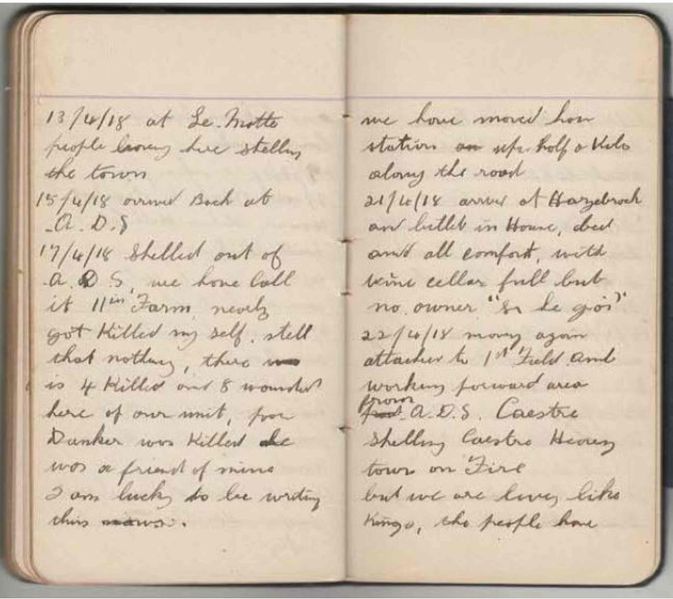 13/4/18 at Le Motte
people leaving here shelling
the town
15/4/18 arrived Back at
A. D. S
17/4/18 Shelled out of
A. D. S, we have Call
it 11in Farm, nearly
got Killed my self, still
that nothing, there
is 4 Killed and 8 wounded
here of our unit, poor
Danker was Killed he
was a friend of mine
I am lucky to be writing
this
we have moved our
station up half a Kilo
along the road
21/4/18 arrive at Hazebrock
and billet in House, bed
and all comfort, with
wine cellar full but
no owner
22/4/18 moving again
attached to 1st Field Amb
working forward area
from A. D. S. Caestre
Shelling Caestre Heavy
town on Fire
but we are living like
Kings, the people have